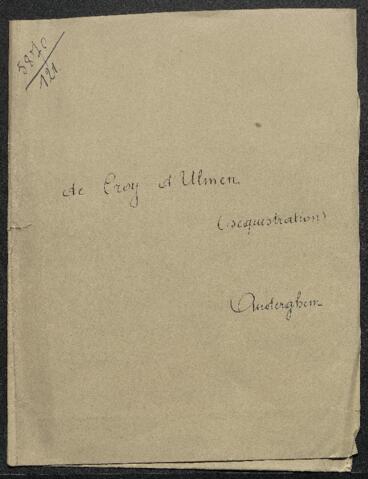 5870/121
de Croy d'Ulmen
(séquestration)
Auderghem